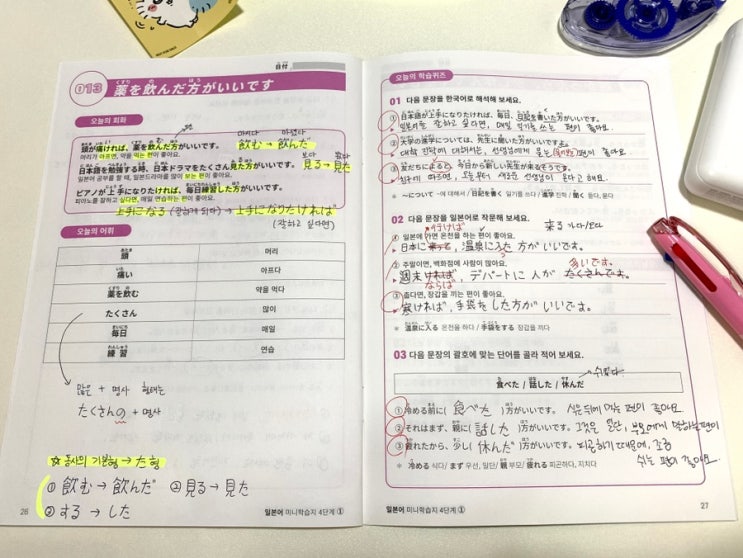 日付
013 薬を飲んだ方がいいです
오늘의 회화
頭が痛ければ、薬を飲んだ方がいいです。
머리가 아프면, 약을 먹는 편이 좋아요.
飲む→飲んだ
日本語を勉強する時、日本ドラマをたくさん見た方がいいです。
일본어 공부를 할 때, 일본드라마를 많이 보는 편이 좋아요.
見る→見た
ピアノが上手になりたければ、毎日練習した方がいいです。
피아노를 잘하고 싶다면, 매일 연습하는 편이 좋아요.
上手になる (잘하게 되다) → 上手になりたければ
(잘하고 싶다면)
오늘의 어휘
頭 머리
痛い 아프다
薬を飲む 약을 먹다
たくさん 많이
毎日 매일
練習 연습
많은 + 명사 형태는
たくさんの + 명사
☆ 동사의 기본형 → た형
① 飲む → 飲んだ ③ 見る → 見た
② する → した
26
일본어 미니학습지 4단계 ①
오늘의 학습퀴즈
01 다음 문장을 한국어로 해석해 보세요.
① 日本語が上手になりたければ、毎日、日記を書いた方がいいです。
일본어를 잘하고 싶다면, 매일 일기를 쓰는 편이 좋아요.
② 大学の進学については、先生に聞いた方がいいですよ。
대학 진학에 대해서는, 선생님에게 묻는 편이 좋아요.
③ 友だちによると、今日から新しい先生が来るそうです。
친구에 따르면, 오늘부터 새로운 선생님이 온다고 해요.
※ ~について ~에 대해서 / 日記を書く 일기를 쓰다 / 進学 진학 / 聞く 듣다, 묻다
02 다음 문장을 일본어로 작문해 보세요.
来る 가다/오다
① 일본에 가면 온천을 하는 편이 좋아요.
行けば
日本に来って, 温泉に入った 方がいいです。
② 주말이면, 백화점에 사람이 많아요.
多いです。
週末ければ, デパートに人が たくさんです。
ならば
③ 춥다면, 장갑을 끼는 편이 좋아요.
寒ければ, 手袋をした方がいいです。
※ 温泉に入る 온천을 하다 / 手袋をする 장갑을 끼다
03 다음 문장의 괄호에 맞는 단어를 골라 적어 보세요.
쉬었다
食べた / 話した / 休んだ
① 冷める前に( 食べた )方がいいです。 식은 뒤에 먹는 편이 좋아요.
② それはまず、親に( 話した )方がいいです。 그것은 일단, 부모에게 말하는 편이
③ 疲れたから、少し( 休んだ )方がいいです。 피곤하기 때문에, 조금
쉬는 편이 좋아요.
※ 冷める 식다 / まず 우선, 일단 / 親 부모 / 疲れる 피곤하다, 지치다
27
일본어 미니학습지 4단계 ①